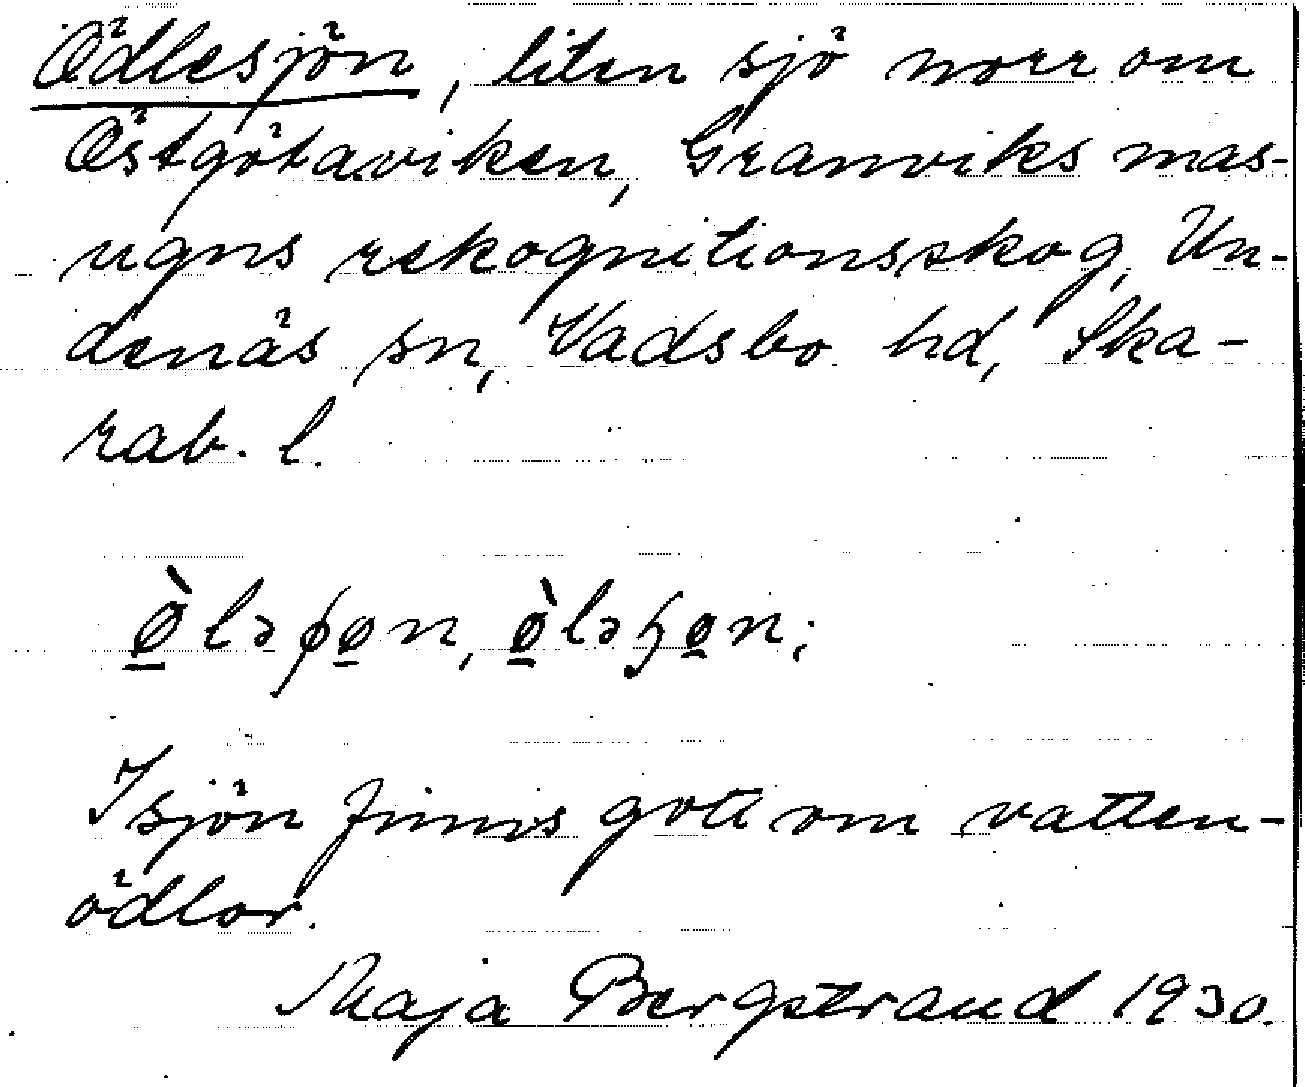 Ödlesjön, liten sjö norr om
Östgötaviken, Granviks mas-
ugns rekognitionsskog, Un-
denäs sn, Vadsbo hd, Ska-
rab. l.
I sjön finns gott om vatten-
ödlor.
Maja Bergstrand 1930.